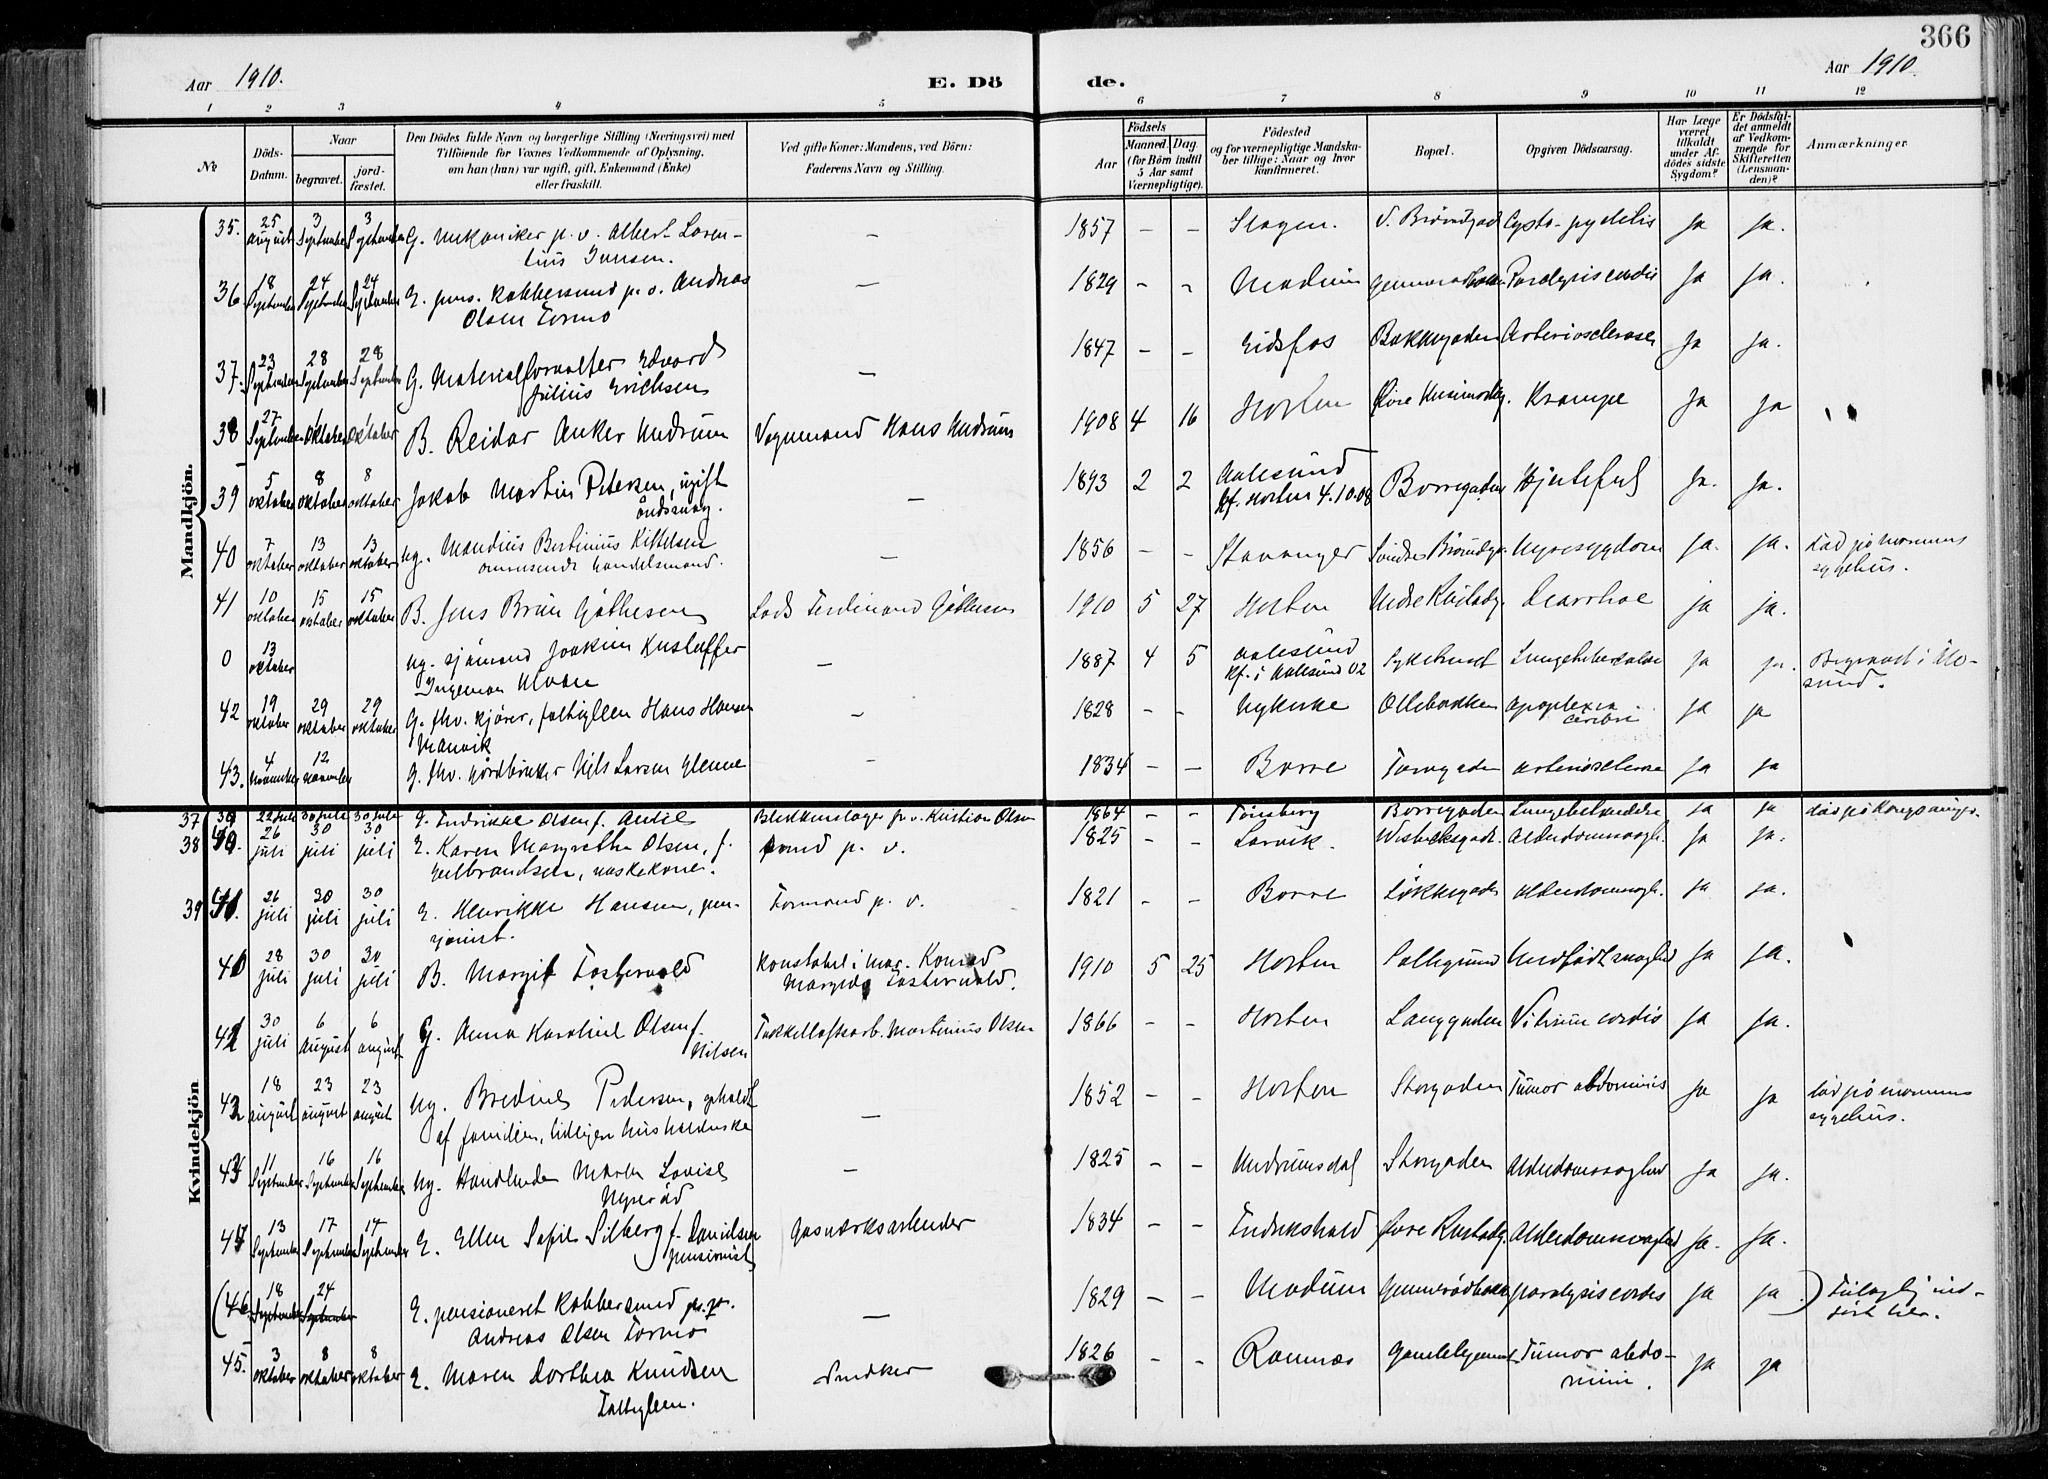 366
Aar 1910. E. Dö
de. Aar 1910.
1 2 3 4 5 6 7 8 9 10 11 12
№
Döds-
Datum.
Naar
begravet.
jord-
fæstet.
Den Dödes fulde Navn og borgerlige Stilling (Næringsvei) med
Tilföiende for Voxnes Vedkommende af Oplysning,
om han (hun) var ugift, gift, Enkemand (Enke)
eller fraskilt.
Ved gifte Koner: Mandens, ved Börn:
Faderens Navn og Stilling.
Födsels
Aar
Maaned. Dag
(for Börn indtil
5 Aar samt
Værnepligtige).
Födested
og for værnepligtige Mandska-
ber tillige: Naar og hvor
konfirmeret.
Bopæl.
Opgiven Dödsaarsag.
Har Læge
været
tilkaldt
under Af-
dödes sidste
Sygdom?
Er Dödsfal-
det anmeldt
af Vedkom-
mende for
Skifteretten
(Lensman-
den)?
Anmærkninger
Mandkjön.
35. 25 august 3 September 3 September G. Mekaniker p. v. Albert Loren-
tius Jensen. — 1857 — — Slagen. Cysto-pyelitis Ja Ja.
36. 18 September 24 September 24 September E. pens. Kobbersmed p. v. Andreas
Olsen Formo — 1829 - - Modum Gunnerødbakken Paralysis cordis Ja Ja.
37. 23 September 28 September 28 September G. Materialforvalter Edvard
Julius Erichsen — 1847 - - Eidsfos Bakkegaden Arteriosclerose Ja Ja.
38 27 September 1 Oktober 1 Oktober B. Reidar Anker Undrum Vognmand Hans Undrum 1908 4 16 Horten Krampe Ja Ja
39 5 oktober 8 oktober 8 oktober Jakob Martin Petersen, ugift
åndssvag. — 1893 2 2 Aalesund
kf. Horten 4.10.08 Borregaden Hjertefeil Ja. Ja.
40 7 oktober 13 oktober 13 oktober ug. Mandius Bertinius Kittelsen
omreisende handelsmand. — 1856 - - Stavanger Nyresygdom Ja. Ja. død på marinens
sygehus.
41 10 oktober 15 oktober 15 oktober B. Jens Brun Gjøthesen Lods Ferdinand Gjøthesen 1910 5 27 Horten Diarrhoe Ja Ja.
0 13 oktober ug. sjømand Joakim Kristoffer
Ingeman — 1887 4 5 Aalesund
kf. i Aalesund 02 Sykehuset Lungetuberkulose Ja Ja. Begravet i Åle-
sund.
42 19 oktober 29 oktober 29 oktober G. fhv. kjører, fattiglem Hans Hansen
Manvik — 1828 - - Nykirke Ollebakken apoplexia
cerebri Ja Ja
43. 4 november 12 november G. fhv. gårdbruker Nils Larsen Glenne - 1834 - - Borre Torvgaden arteriosclerose Ja Ja
Kvindekjön
37 22 Juli 30 Juli 30 Juli G. Fredrikke Olsen f. Blikkenslager p. v. Kristian Olsen 1864 - - Tønsberg Borregaden Lungebetændelse Ja Ja
38 26 juli 30 juli 30 juli E. Karen Margrethe Olsen, f.
Gulbrandsen, vaskekone. smed p. v. 1825 - - Larvik. Wesbecksgade. Alderdomssvagh. Ja Ja.
39 26 juli 30 juli 30 juli E. Henrikke Hansen, pen-
sionist. Formand p. v. 1821 - - Borre Løkkegaden alderdomssvagh. Ja Ja.
40 28 juli 30 juli 30 juli B. Margit Fostervold Konstabel i mar. Konrad
Fostervold. 1910 5 25 Horten Medfødt svaghed Ja Ja.
41 30 juli 6 august 6 august G. Anna Karoline Olsen f.
Nilsen Takkelloftsarb. Martinius Olsen 1866 - - Horten Langgaden Vitium cordis Ja Ja.
42 18 august 23 august 23 august ug. Bredine Pedersen, opholdt
af familien, tidligere husholderske — 1852 - - Horten Storgaden Tumor abdominis Ja Ja død på marinens
sygehus.
43 11 September 16 September 16 September ug. Handlende Maren Lovise
Nyserød — 1825 - - Undrumsdal Storgaden Alderdomssvaghed Ja Ja.
44 13 September 17 September 17 September E. Ellen Sofie Silberg f. Danielsen
pensionist Gasværksarbeider 1834 - - Fredrikshald Øvre Alderdomssvaghed Ja. Ja.
(46 18 September 24 September E. pensioneret Kobbersmed p. v.
Andreas Olsen Formo — 1829 - - Modum Gunnerødbakken paralysis cordis Ja Ja.) Feilaglig ind-
ført her.
45. 3 oktober 8 oktober 8 oktober E. Maren Dorthea Knudsen
Fattiglem. Snedker 1826 - - Ramnæs Tumor abdo-
mini. Ja Ja